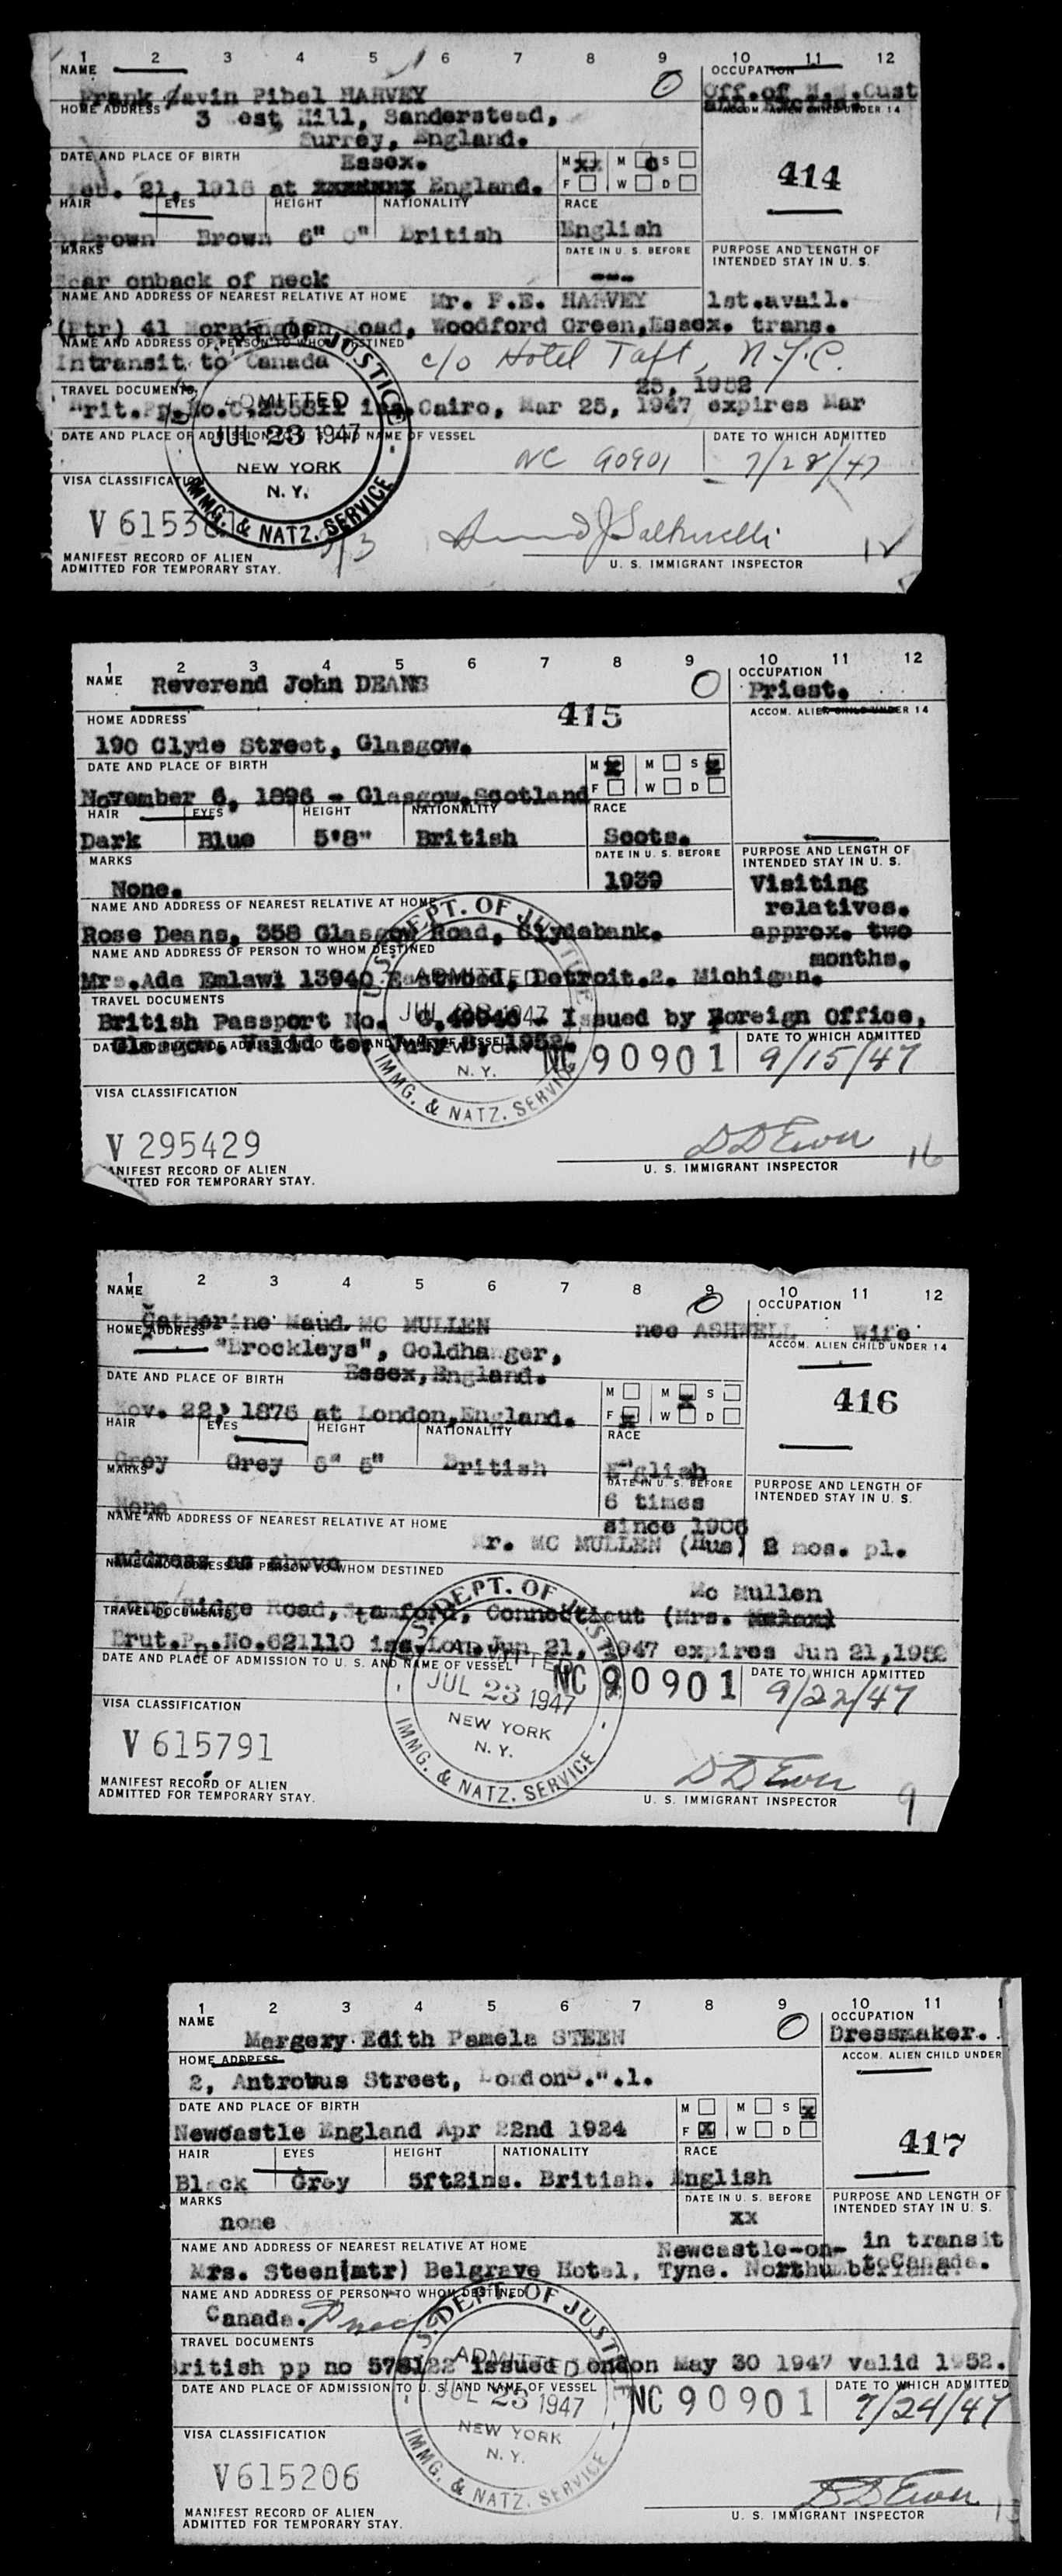 1 2 3 4 5 6 7 8 9 10 11 12
NAME OCCUPATION
Frank Gavin Pibel HARVEY Off.of H.M.Cust
HOME ADDRESS and Excise. ACCOM. ALIEN CHILD UNDER 14
3 est Hill, Sanderstead,
Surrey, England.
DATE AND PLACE OF BIRTH Essex. M xx M S
Feb. 21, 1918 at xxxxxxx England. F W D
414
HAIR EYES HEIGHT NATIONALITY RACE
Brown Brown 6" 0" British English
MARKS DATE IN U. S. BEFORE PURPOSE AND LENGTH OF INTENDED STAY IN U. S.
Scar onback of neck ---
NAME AND ADDRESS OF NEAREST RELATIVE AT HOME Mr. F.E. HARVEY 1st.avail.
(Ftr) 41 Road, Woodford Green,Essex. trans.
NAME AND ADDRESS OF PERSON TO WHOM DESTINED
Intransit to Canada c/o Hotel Taft, N.Y.C.
TRAVEL DOCUMENTS 25, 1952
Brit.Pp.No.C.235311 iss.Cairo, Mar 25, 1947 expires Mar
DATE AND PLACE OF ADMISSION TO U. S. AND NAME OF VESSEL DATE TO WHICH ADMITTED
NC 90901 7/28/47
U.S. DEPT. OF JUSTICE
ADMITTED
JUL 23 1947
NEW YORK
N. Y.
IMMG. & NATZ. SERVICE
VISA CLASSIFICATION
V 6153
MANIFEST RECORD OF ALIEN
ADMITTED FOR TEMPORARY STAY.
U. S. IMMIGRANT INSPECTOR 12
1 2 3 4 5 6 7 8 9 10 11 12
NAME Reverend John DEANS OCCUPATION
Priest.
HOME ADDRESS 415 ACCOM. ALIEN CHILD UNDER 14
190 Clyde Street, Glasgow.
DATE AND PLACE OF BIRTH M x M S x
November 6, 1896 - Glasgow,Scotland F W D
HAIR EYES HEIGHT NATIONALITY RACE
Dark Blue 5'8" British Scots.
MARKS DATE IN U. S. BEFORE PURPOSE AND LENGTH OF INTENDED STAY IN U. S.
None. 1939 Visiting
NAME AND ADDRESS OF NEAREST RELATIVE AT HOME relatives.
Rose Deans, 358 Glasgow Road, Clydebank. approx. two
NAME AND ADDRESS OF PERSON TO WHOM DESTINED months.
Mrs.Ada Emlawi 13940 Eastwood, Detroit.2. Michigan.
TRAVEL DOCUMENTS
British Passport No. Issued by Foreign Office,
Glasgow. Valid to, July 8, 1952.
DATE AND PLACE OF ADMISSION TO U. S. AND NAME OF VESSEL DATE TO WHICH ADMITTED
NC 90901 9/15/47
U.S. DEPT. OF JUSTICE
ADMITTED
JUL 23 1947
NEW YORK
N. Y.
IMMG. & NATZ. SERVICE
VISA CLASSIFICATION
V 295429
MANIFEST RECORD OF ALIEN
ADMITTED FOR TEMPORARY STAY.
D D Ewen
U. S. IMMIGRANT INSPECTOR 16
1 2 3 4 5 6 7 8 9 10 11 12
NAME OCCUPATION
Catherine Maud MC MULLEN nee ASHWELL Wife
HOME ADDRESS ACCOM. ALIEN CHILD UNDER 14
"Brockleys", Goldhanger,
Essex,England.
DATE AND PLACE OF BIRTH M M x S
Nov. 22, 1876 at London,England. F x W D
416
HAIR EYES HEIGHT NATIONALITY RACE
Grey Grey 5" 5" British English
MARKS DATE IN U. S. BEFORE PURPOSE AND LENGTH OF INTENDED STAY IN U. S.
None 6 times
since 1906
NAME AND ADDRESS OF NEAREST RELATIVE AT HOME
Mr. MC MULLEN (Hus) 2 mos. pl.
address as above
NAME AND ADDRESS OF PERSON TO WHOM DESTINED
Mc Mullen
Long Ridge Road, Stamford, Connecticut (Mrs.
TRAVEL DOCUMENTS
Brut.Pp.No.621110 iss.Lon.Jun 21, 1947 expires Jun 21,1952
DATE AND PLACE OF ADMISSION TO U. S. AND NAME OF VESSEL DATE TO WHICH ADMITTED
NC 90901 9/22/47
U.S. DEPT. OF JUSTICE
ADMITTED
JUL 23 1947
NEW YORK
N. Y.
IMMG. & NATZ. SERVICE
VISA CLASSIFICATION
V 615791
MANIFEST RECORD OF ALIEN
ADMITTED FOR TEMPORARY STAY.
D D Ewen
U. S. IMMIGRANT INSPECTOR 9
1 2 3 4 5 6 7 8 9 10 11 1
NAME OCCUPATION
Margery Edith Pamela STEEN Dressmaker.
HOME ADDRESS ACCOM. ALIEN CHILD UNDER
2, Antrobus Street, London S.W.1.
DATE AND PLACE OF BIRTH M M S x
Newcastle England Apr 22nd 1924 F x W D
417
HAIR EYES HEIGHT NATIONALITY RACE
Black Grey 5ft2ins. British. English
MARKS DATE IN U. S. BEFORE PURPOSE AND LENGTH OF INTENDED STAY IN U. S.
none xx
NAME AND ADDRESS OF NEAREST RELATIVE AT HOME Newcastle-on- in transit
Mrs. Steen(mtr) Belgrave Hotel, Tyne. Northumberland. toCanada.
NAME AND ADDRESS OF PERSON TO WHOM DESTINED
Canada.
TRAVEL DOCUMENTS
British pp no 576122 issued London May 30 1947 valid 1952.
DATE AND PLACE OF ADMISSION TO U. S. AND NAME OF VESSEL DATE TO WHICH ADMITTED
NC 90901 7/24/47
U.S. DEPT. OF JUSTICE
ADMITTED
JUL 23 1947
NEW YORK
N. Y.
IMMG. & NATZ. SERVICE
VISA CLASSIFICATION
V615206
MANIFEST RECORD OF ALIEN
ADMITTED FOR TEMPORARY STAY.
D D Ewen
U. S. IMMIGRANT INSPECTOR